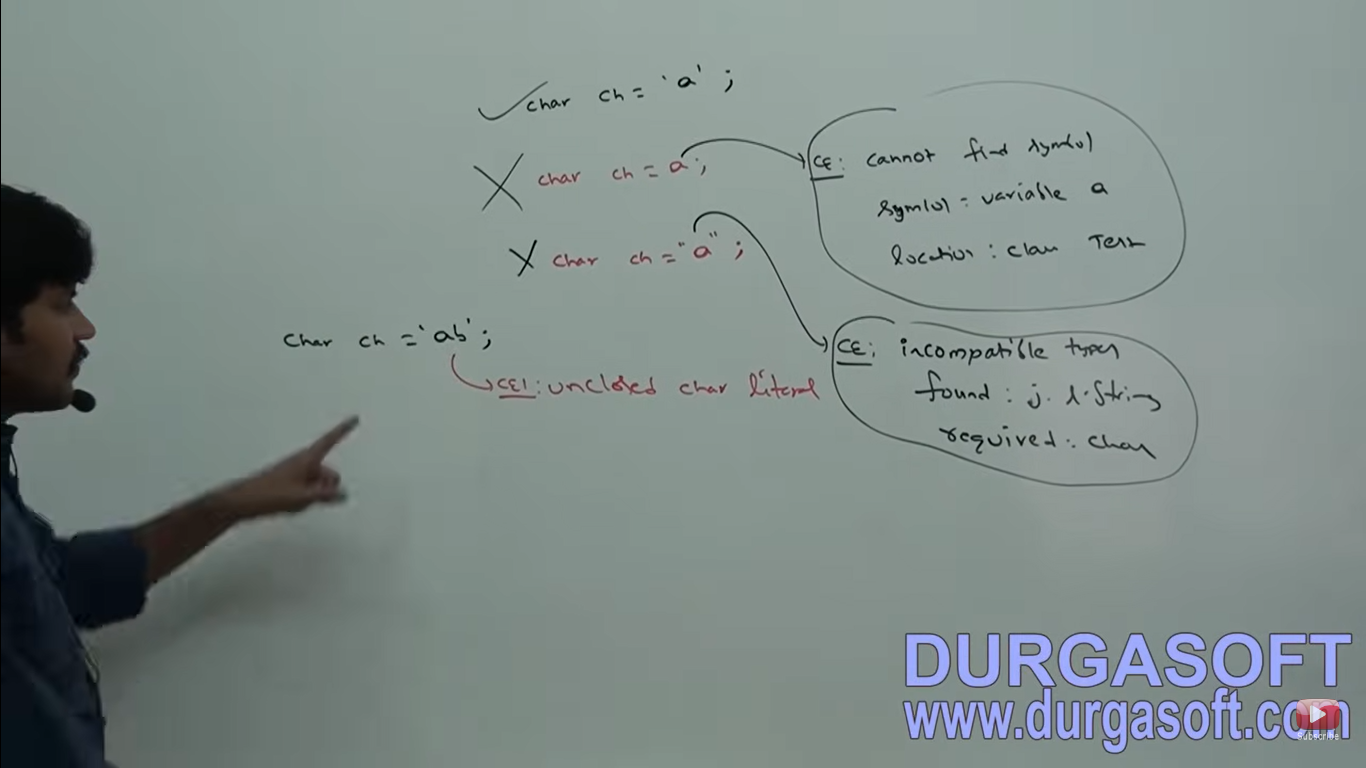 char ch = 'a' ;
char ch = a ;
char ch = "a" ;
CE: cannot find symbol
symbol = variable a
location : class Test
CE: incompatible types
found : j.l.String
required : char
char ch = 'ab' ;
CE1 : unclosed char literal
DURGASOFT
www.durgasoft.com
Subscribe